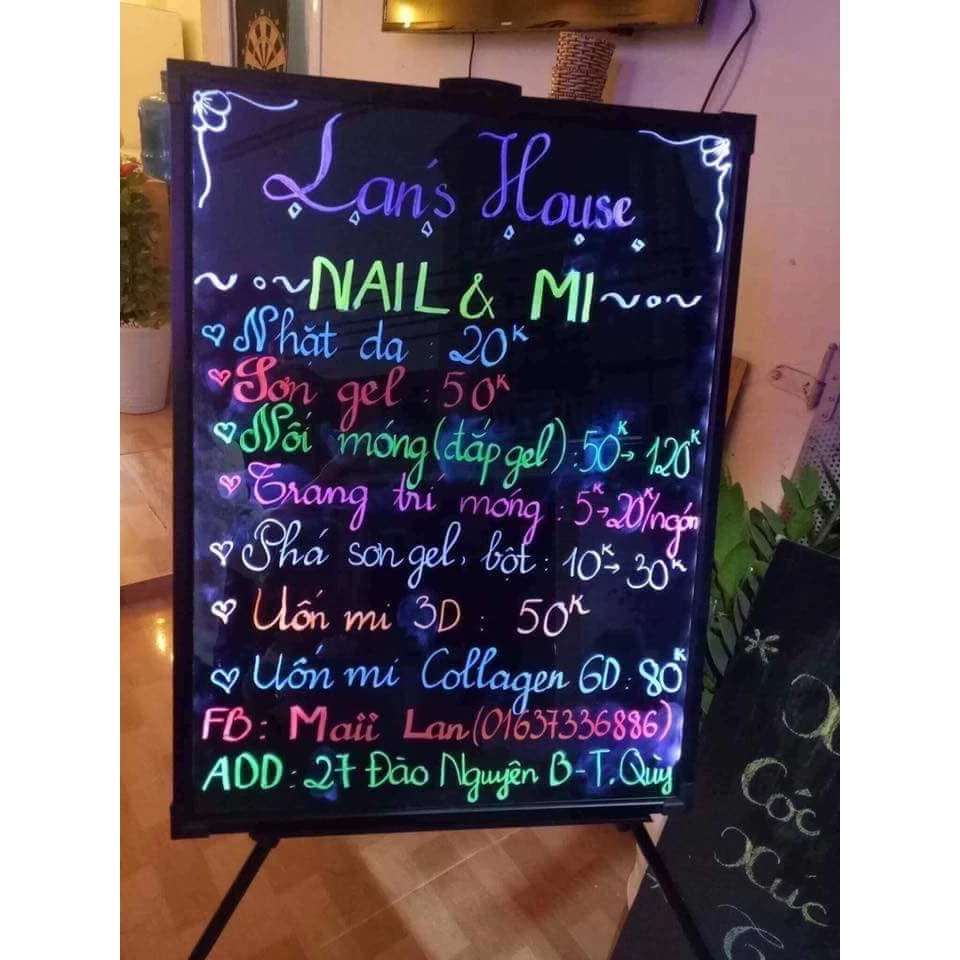 Lan's House
NAIL & MI
Nhặt da : 20K
Sơn gel : 50K
Nối móng (đắp gel) : 50K → 120K
Trang trí móng : 5K → 20K/ngón
Phá sơn gel, bột : 10K → 30K
Uốn mi 3D : 50K
Uốn mi Collagen 6D : 80K
FB : Maii Lan (01637336886)
ADD : 27 Đào Nguyên B - T. Qùy
Cóc
Xúc